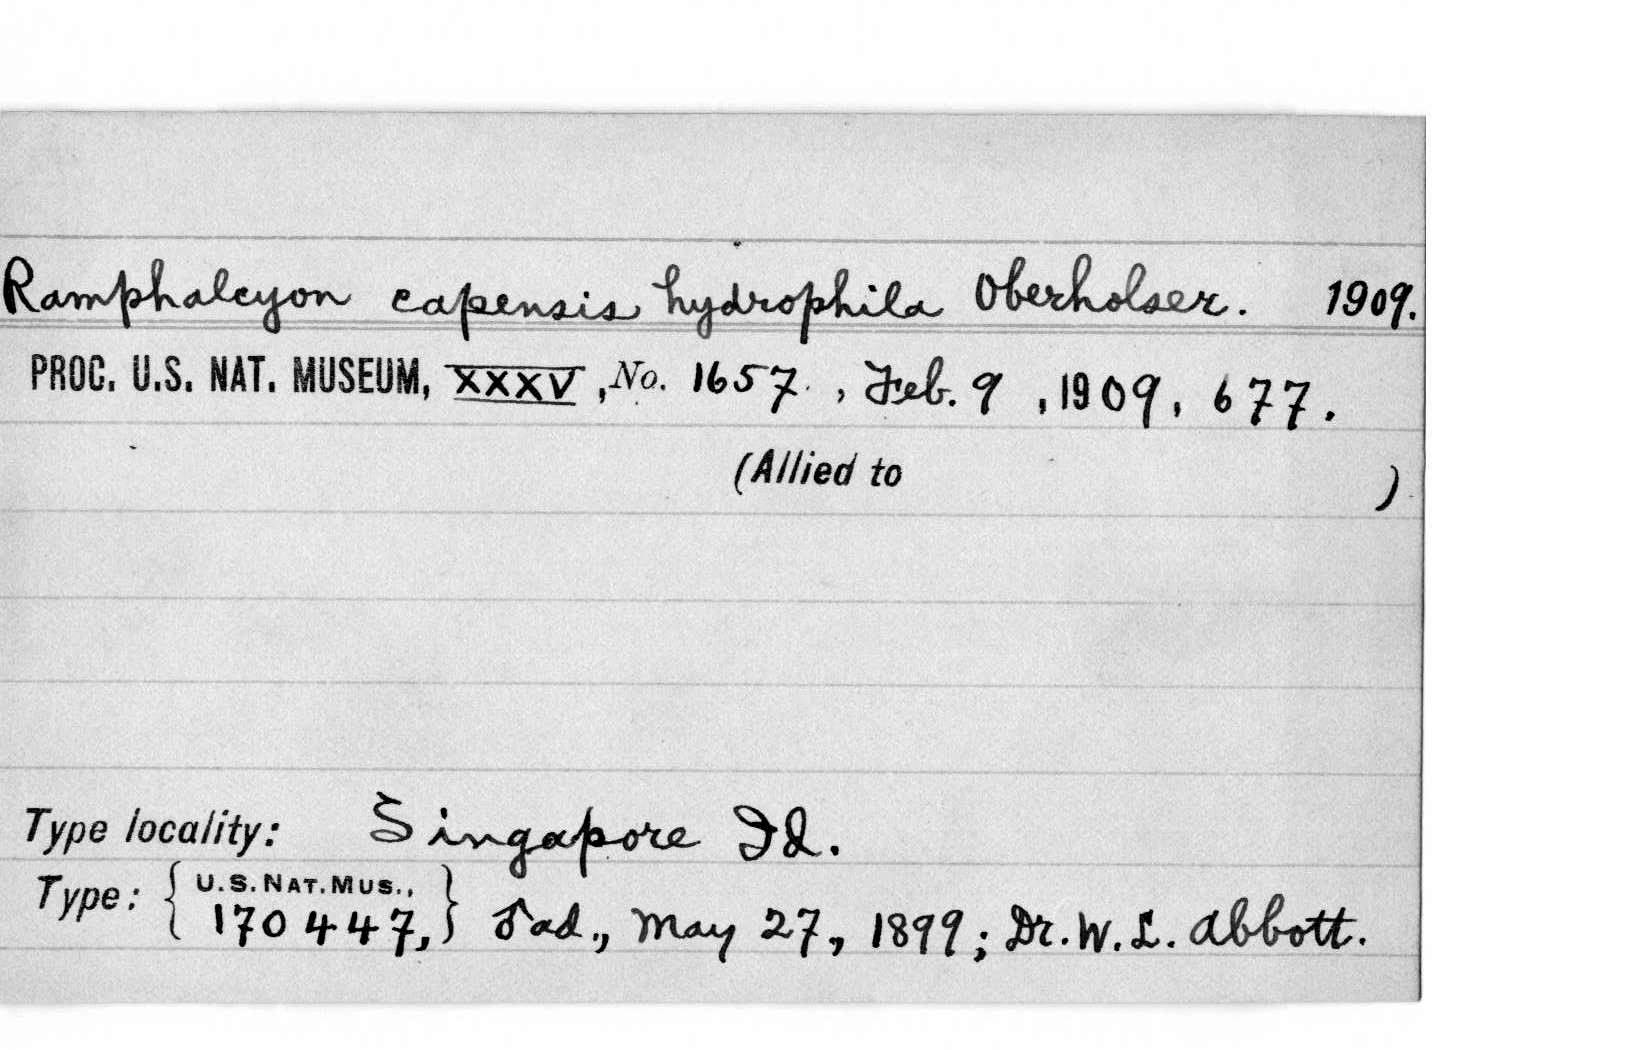 Ramphalcyon capensis hydrophila Oberholser. 1909.
PROC. U.S. NAT. MUSEUM, XXXV, No. 1657, Feb. 9, 1909, 677.
(Allied to )
Type locality: Singapore Id.
Type: { U.S. NAT. MUS.,
170447, } ♂ ad., May 27, 1899; Dr. W. L. Abbott.